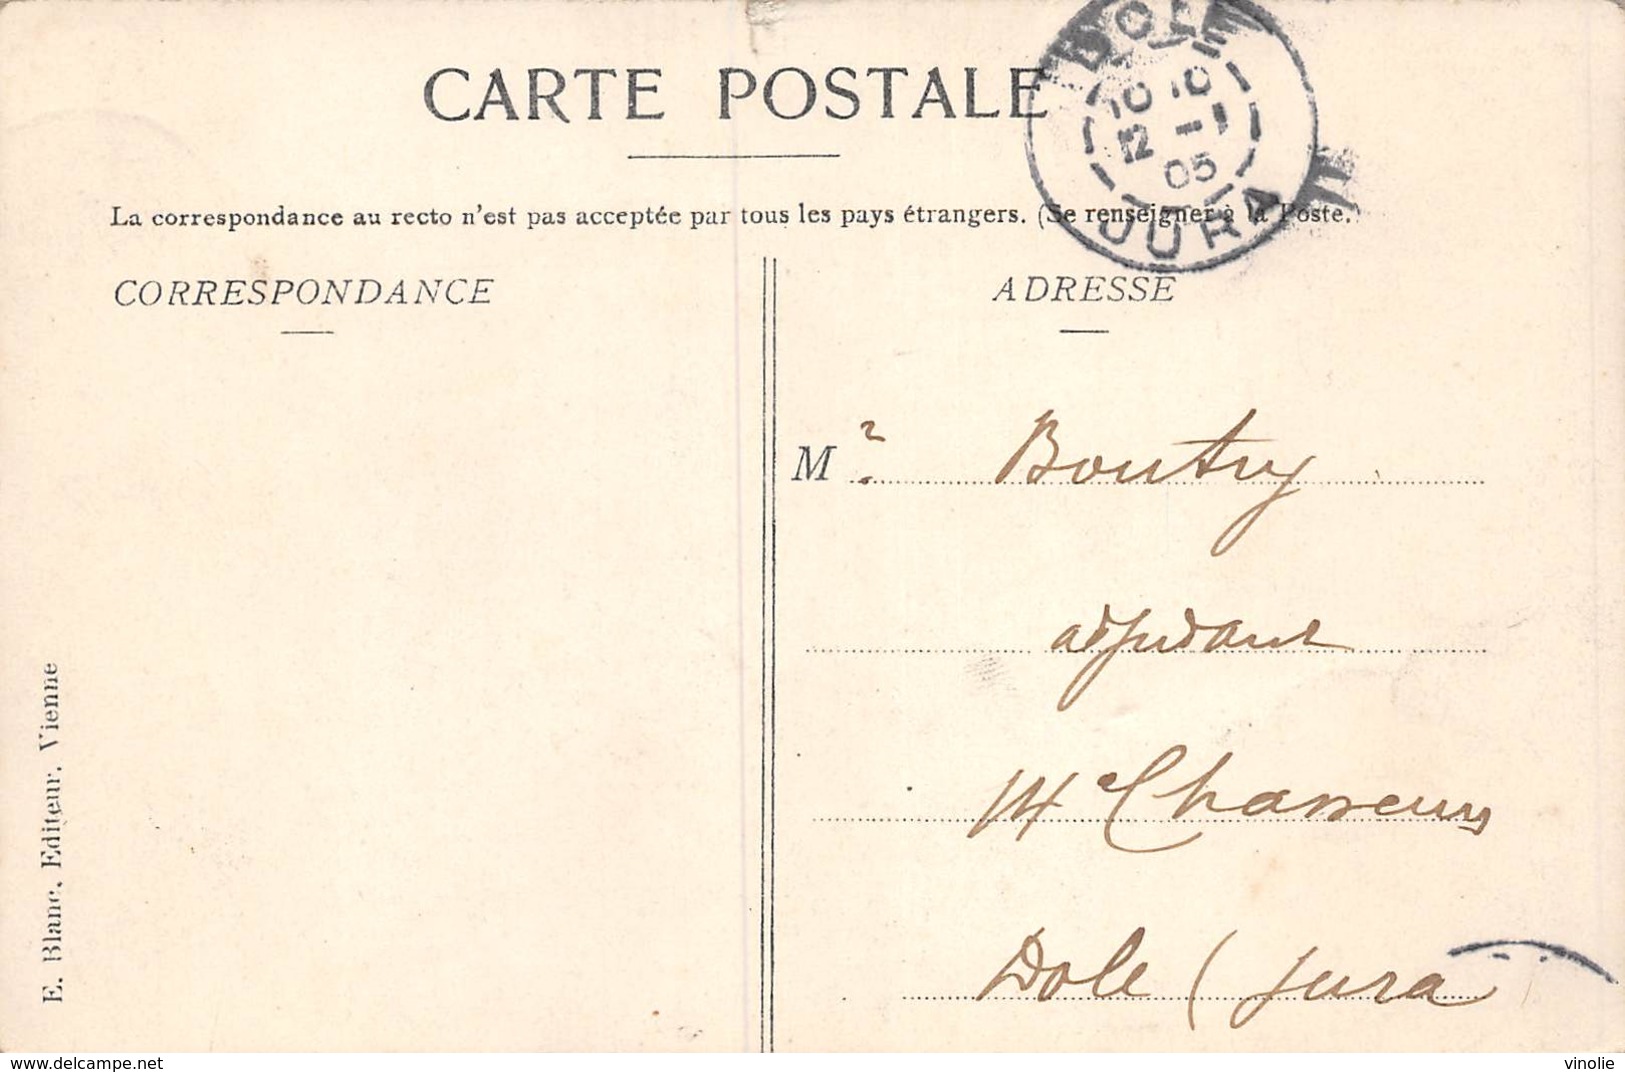 CARTE POSTALE
DOLE
05
JURA
La correspondance au recto n'est pas acceptée par tous les pays étrangers. (Se renseigner à la Poste.)
CORRESPONDANCE
ADRESSE
Mr. Boutry
adjudant
14 Chasseurs
Dole (Jura
E. Blanc, Editeur, Vienne
https://www.delcampe.net
vinolie